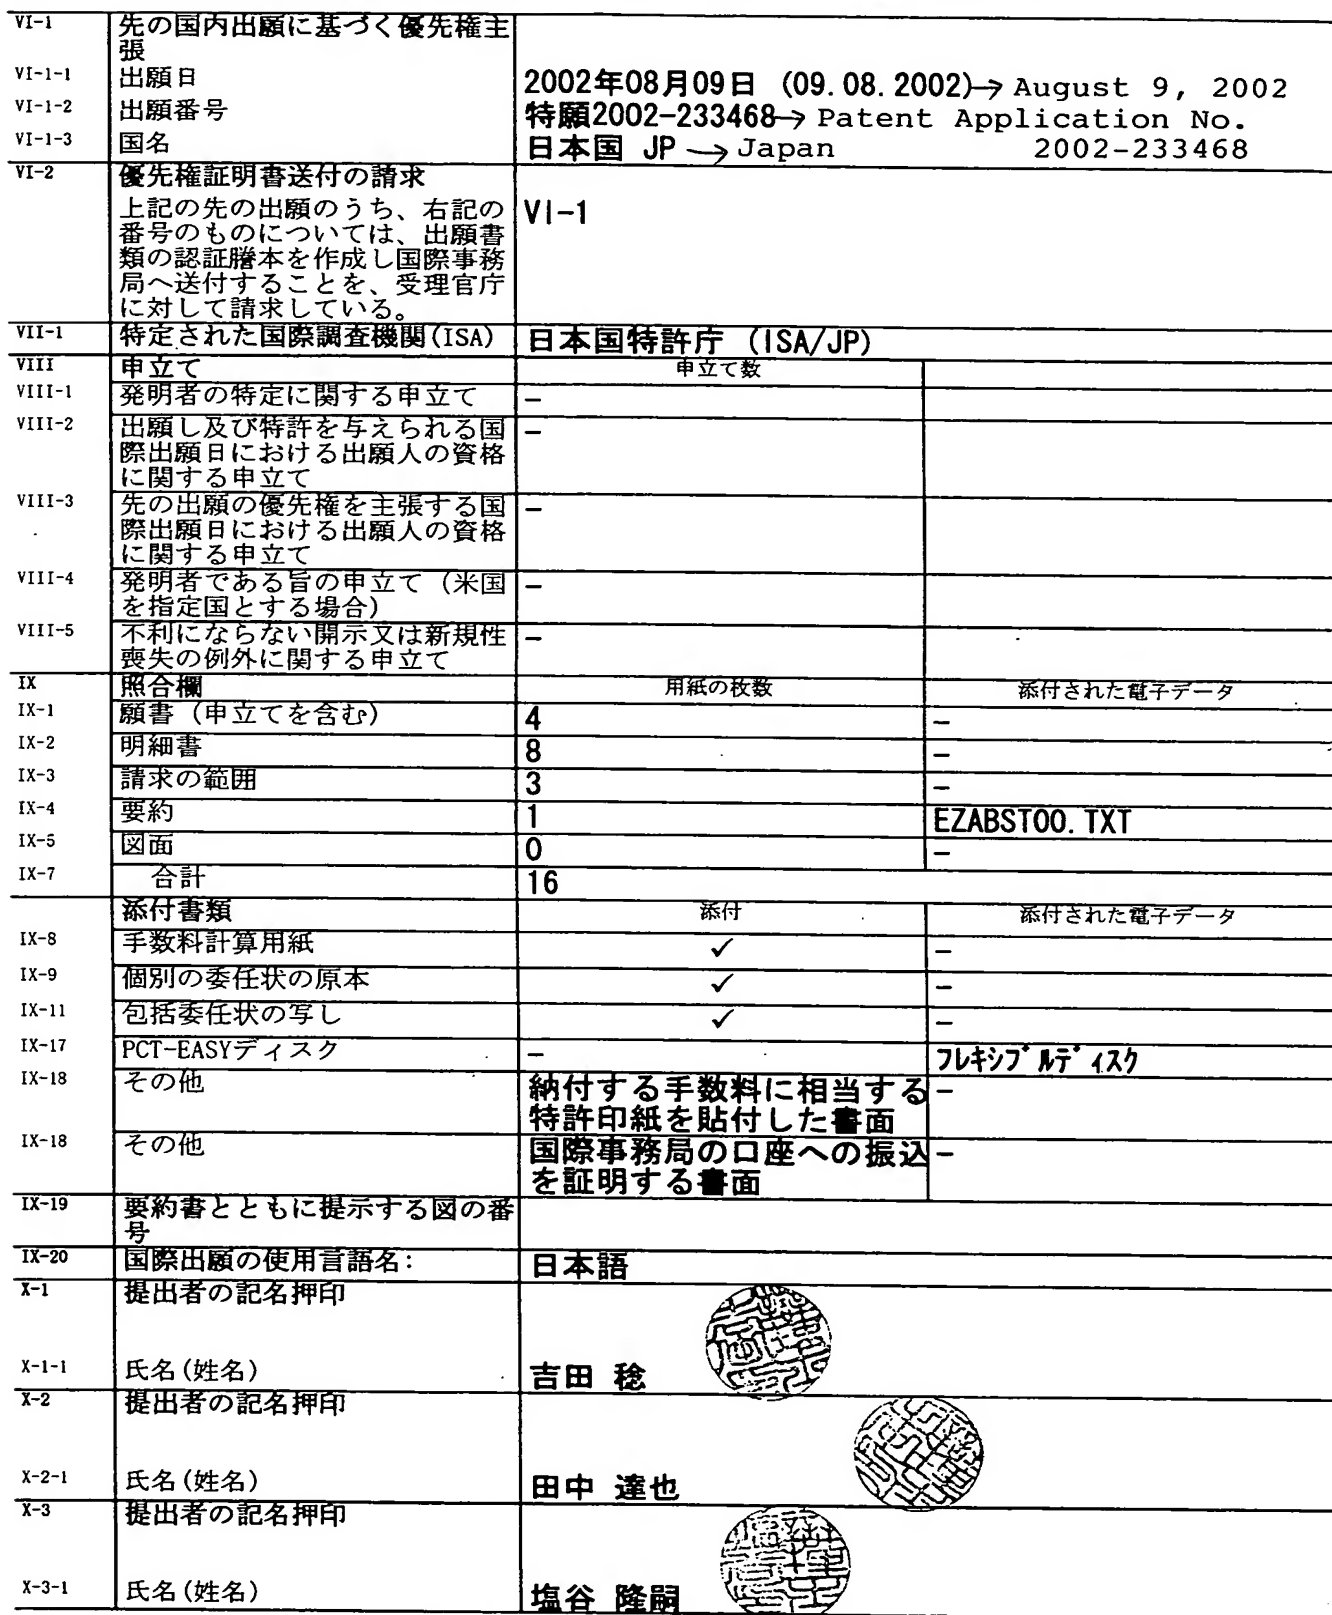 VI-1 先の国内出願に基づく優先権主
張
VI-1-1 出願日 2002年08月09日 (09.08.2002)→ August 9, 2002
VI-1-2 出願番号 特願2002-233468→ Patent Application No.
VI-1-3 国名 日本国 JP → Japan 2002-233468
VI-2 優先権証明書送付の請求
上記の先の出願のうち、右記の VI-1
番号のものについては、出願書
類の認証謄本を作成し国際事務
局へ送付することを、受理官庁
に対して請求している。
VII-1 特定された国際調査機関(ISA) 日本国特許庁 (ISA/JP)
VIII 申立て 申立て数
VIII-1 発明者の特定に関する申立て -
VIII-2 出願し及び特許を与えられる国 -
際出願日における出願人の資格
に関する申立て
VIII-3 先の出願の優先権を主張する国 -
際出願日における出願人の資格
に関する申立て
VIII-4 発明者である旨の申立て (米国 -
を指定国とする場合)
VIII-5 不利にならない開示又は新規性 -
喪失の例外に関する申立て
IX 照合欄 用紙の枚数 添付された電子データ
IX-1 願書 (申立てを含む) 4 -
IX-2 明細書 8 -
IX-3 請求の範囲 3 -
IX-4 要約 1 EZABST00.TXT
IX-5 図面 0 -
IX-7 合計 16
添付書類 添付 添付された電子データ
IX-8 手数料計算用紙 ✓ -
IX-9 個別の委任状の原本 ✓ -
IX-11 包括委任状の写し ✓ -
IX-17 PCT-EASYディスク - フレキシブルディスク
IX-18 その他 納付する手数料に相当する -
特許印紙を貼付した書面
IX-18 その他 国際事務局の口座への振込 -
を証明する書面
IX-19 要約書とともに提示する図の番
号
IX-20 国際出願の使用言語名: 日本語
X-1 提出者の記名押印
X-1-1 氏名(姓名) 吉田 稔
X-2 提出者の記名押印
X-2-1 氏名(姓名) 田中 達也
X-3 提出者の記名押印
X-3-1 氏名(姓名) 塩谷 隆嗣